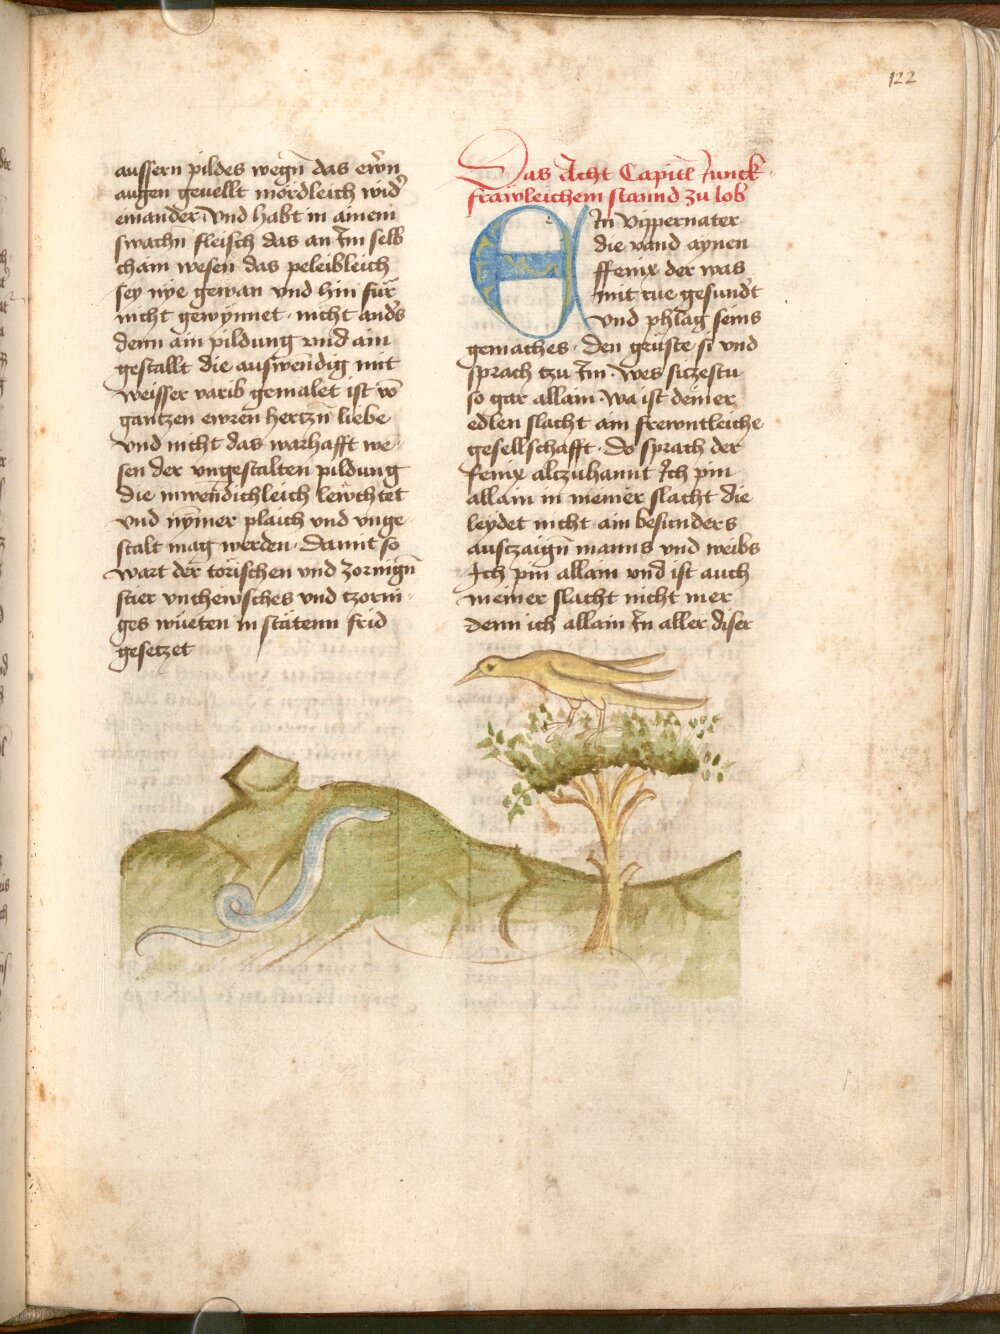 122
aussern pildes wegn̄ das ewn̄
augen geuellt mördleich wid͛
einander · Vnd habt in ainem
swachn̄ fleisch das an Im̄ selb
cham wesen das peleibleich
sey nye gewan vnd hin für
nicht gewÿnnet · nicht and͛s
denn ain pildung vnd ain
gestallt die auswendig mit
weisser varib gemalet ist vō
gantzen ewren hertzn̄ liebe
vnd nicht das warhafft we-
sen der vngestalten pildung
die inwendichleich lewchtet
vnd nÿmer plaich vnd vnge-
stalt mag werden · Damit so
wart der törischen vnd zornign̄
stier vnchewsches vnd tzorni-
ges wüeten in stätenn frid
gesetzet
Das Acht Capitel Junck-
fräwleichem stannd zu lob
Ein Vippernater
die vand aynen
ffenix der was
mit rue gesundt
vnd phlag seins
gemaches · den grüste si vnd
sprach tzu Im̄ · Wes sitzestu
so gar allain · Wa ist deiner
edlen slacht ain frewntleiche
gesellschafft · Do sprach der
fenix alczuhannt Ich pin
allain in meiner slacht die
leydet nicht ain besunders
ausczaign̄ manns vnd weibs
Ich pin allain vnd ist auch
meiner slacht nicht mer
denn ich allain In aller diser